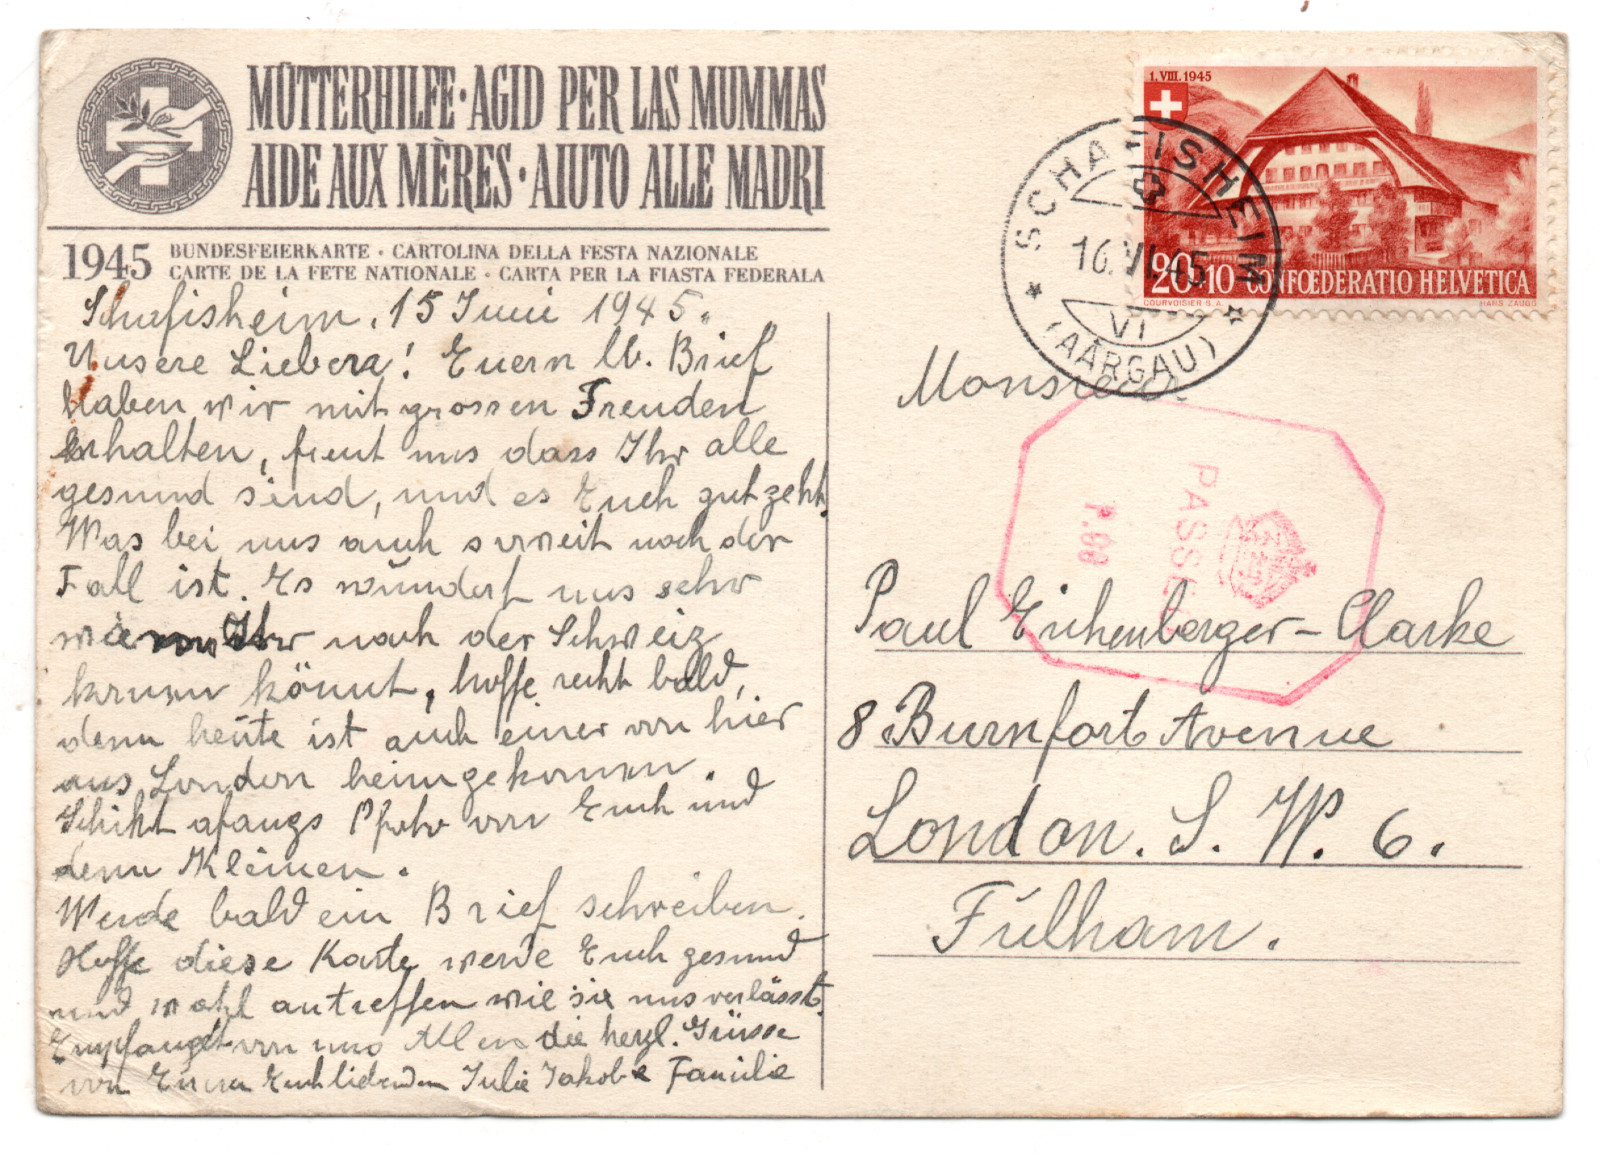 MÜTTERHILFE · AGID PER LAS MUMMAS
AIDE AUX MÈRES · AIUTO ALLE MADRI
1945 BUNDESFEIERKARTE · CARTOLINA DELLA FESTA NAZIONALE
CARTE DE LA FETE NATIONALE · CARTA PER LA FIASTA FEDERALA
Schafisheim, 15 Juni 1945.
Unsere Lieben! Euern lb. Brief
haben wir mit grossen Freuden
erhalten, freut uns dass Ihr alle
gesund sind, und es Euch gut geht.
Was bei uns auch soweit noch der
Fall ist. Es wundert uns sehr
wie Ihr nach der Schweiz
kommen könnt, hoffe recht bald,
denn heute ist auch einer von hier
aus London heimgekommen.
Schikt afangs Photo von Euch und
denn Kleinen.
Werde bald ein Brief schreiben.
Hoffe diese Karte werde Euch gesund
und wohl antreffen wie sie uns verlässt.
Empfanget von uns Allen die herzl. Grüsse
von Euern Euch liebenden Julie Jakob & Familie
1. VIII. 1945
20+10 CONFŒDERATIO HELVETICA
COURVOISIER S.A. HANS ZAUGG
SCHAFISHEIM
16.VI.45
VI
(AARGAU)
Monsieur
PASSED
P.88
Paul Eichenberger-Clarke
8 Burnfort Avenue
London. S. W. 6.
Fulham.